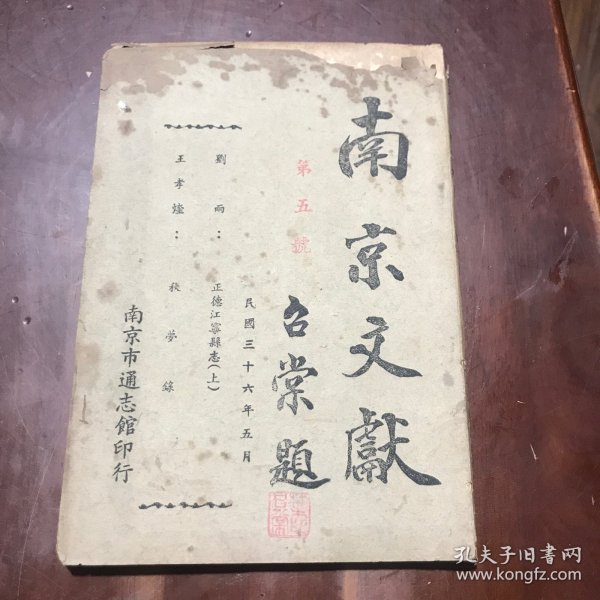 南京文獻
第五號
召棠題
民國三十六年五月
劉雨：正德江寧縣志（上）
王孝煃：秋夢錄
南京市通志館印行
孔夫子旧书网
www.kongfz.com